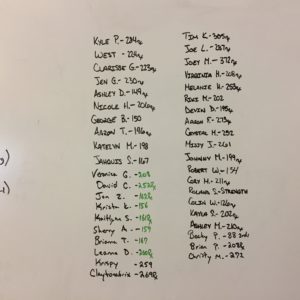 Kyle P. - 284
West - 224
Clarisse G. - 223
Jen G. - 230
Ashley D. - 149
Nicole H. - 206
George B. - 150
Aaron T. - 196
Katelyn M. - 198
Janquis S. - 167
Veronica G. - 208
David C. - 252
Jen Z. - 162
Krista K. - 156
Kaitlyn S. - 161
Sherry A. - 159
Brianna T. - 167
Leanne D. - 200
Krispy - 259
Claytonatrix - 269
Tim K. - 305
Joe L. - 287
Joey M. - 372
Virginia H. - 208
Melanie H. - 253
Riki M - 202
Devin D. - 195
Aaron F. - 273
Crystal H. - 252
Missy J. - 261
Johnny M. - 199
Robert W. - 154
Cory M. - 211
- Strength
Colin W. - 126
Kayla S. - 202
Ashley M. - 210
Becky P. - 88
Brian P. - 208
Christy M. - 272